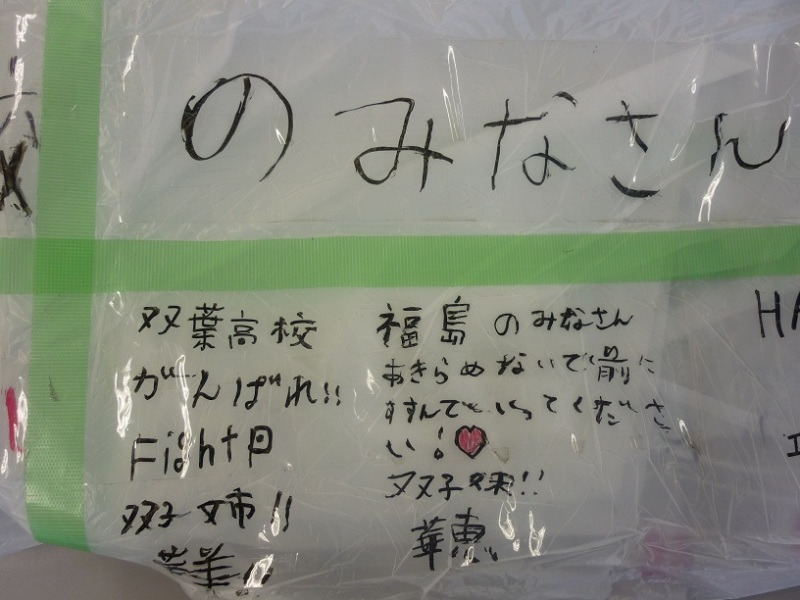 のみなさん
双葉高校
がんばれ!!
Fight
双子姉!!
美
福島のみなさん
あきらめないで前に
すすんでいってくださ
い!
双子妹!!
華恵
HA